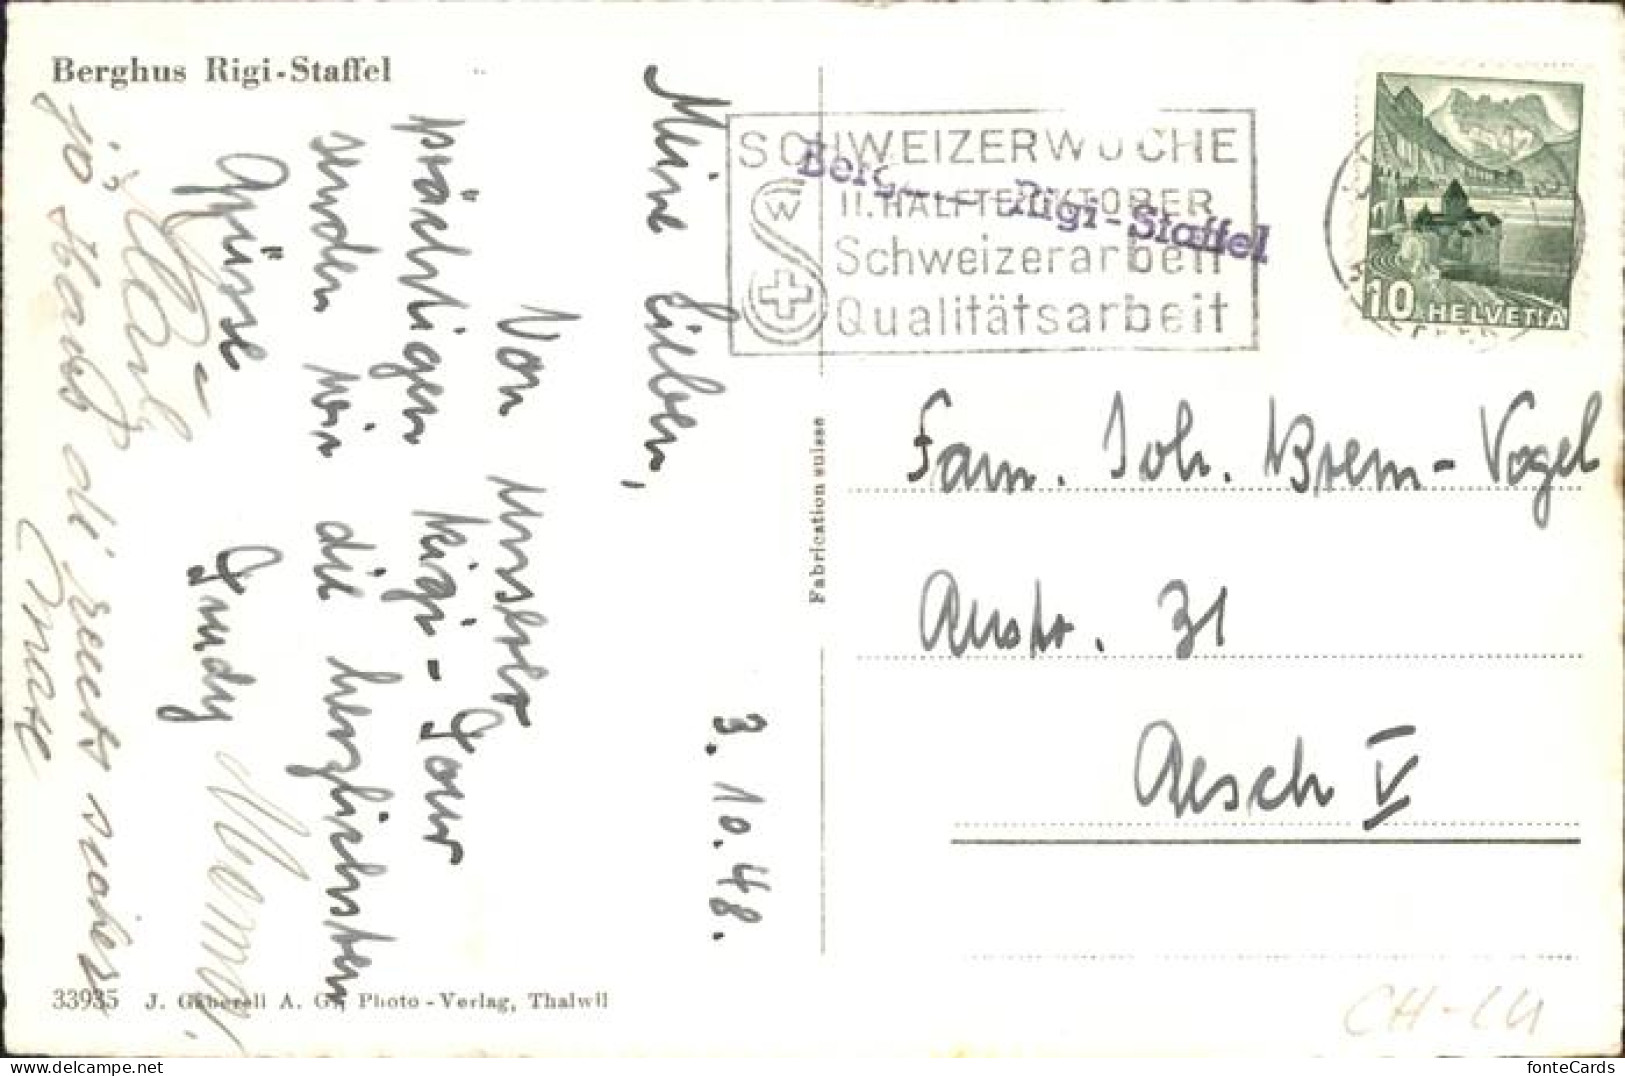 Berghus Rigi-Staffel
3. 10. 48.
Meine Lieben,
Von unserer
prächtigen Rigi-Tour
senden wir die herzlichsten
Grüsse
Trudy
Mama.
33935 J. Gaberell A. G., Photo-Verlag, Thalwil
Fabrication suisse
SCHWEIZERWOCHE
W II. HÄLFTE OKTOBER
Schweizerarbeit
Qualitätsarbeit
Rigi-Staffel
10 HELVETIA
Fam. Joh. Brem-Vogel
Austr. 31
Aesch V
CH-LU
fonteCards